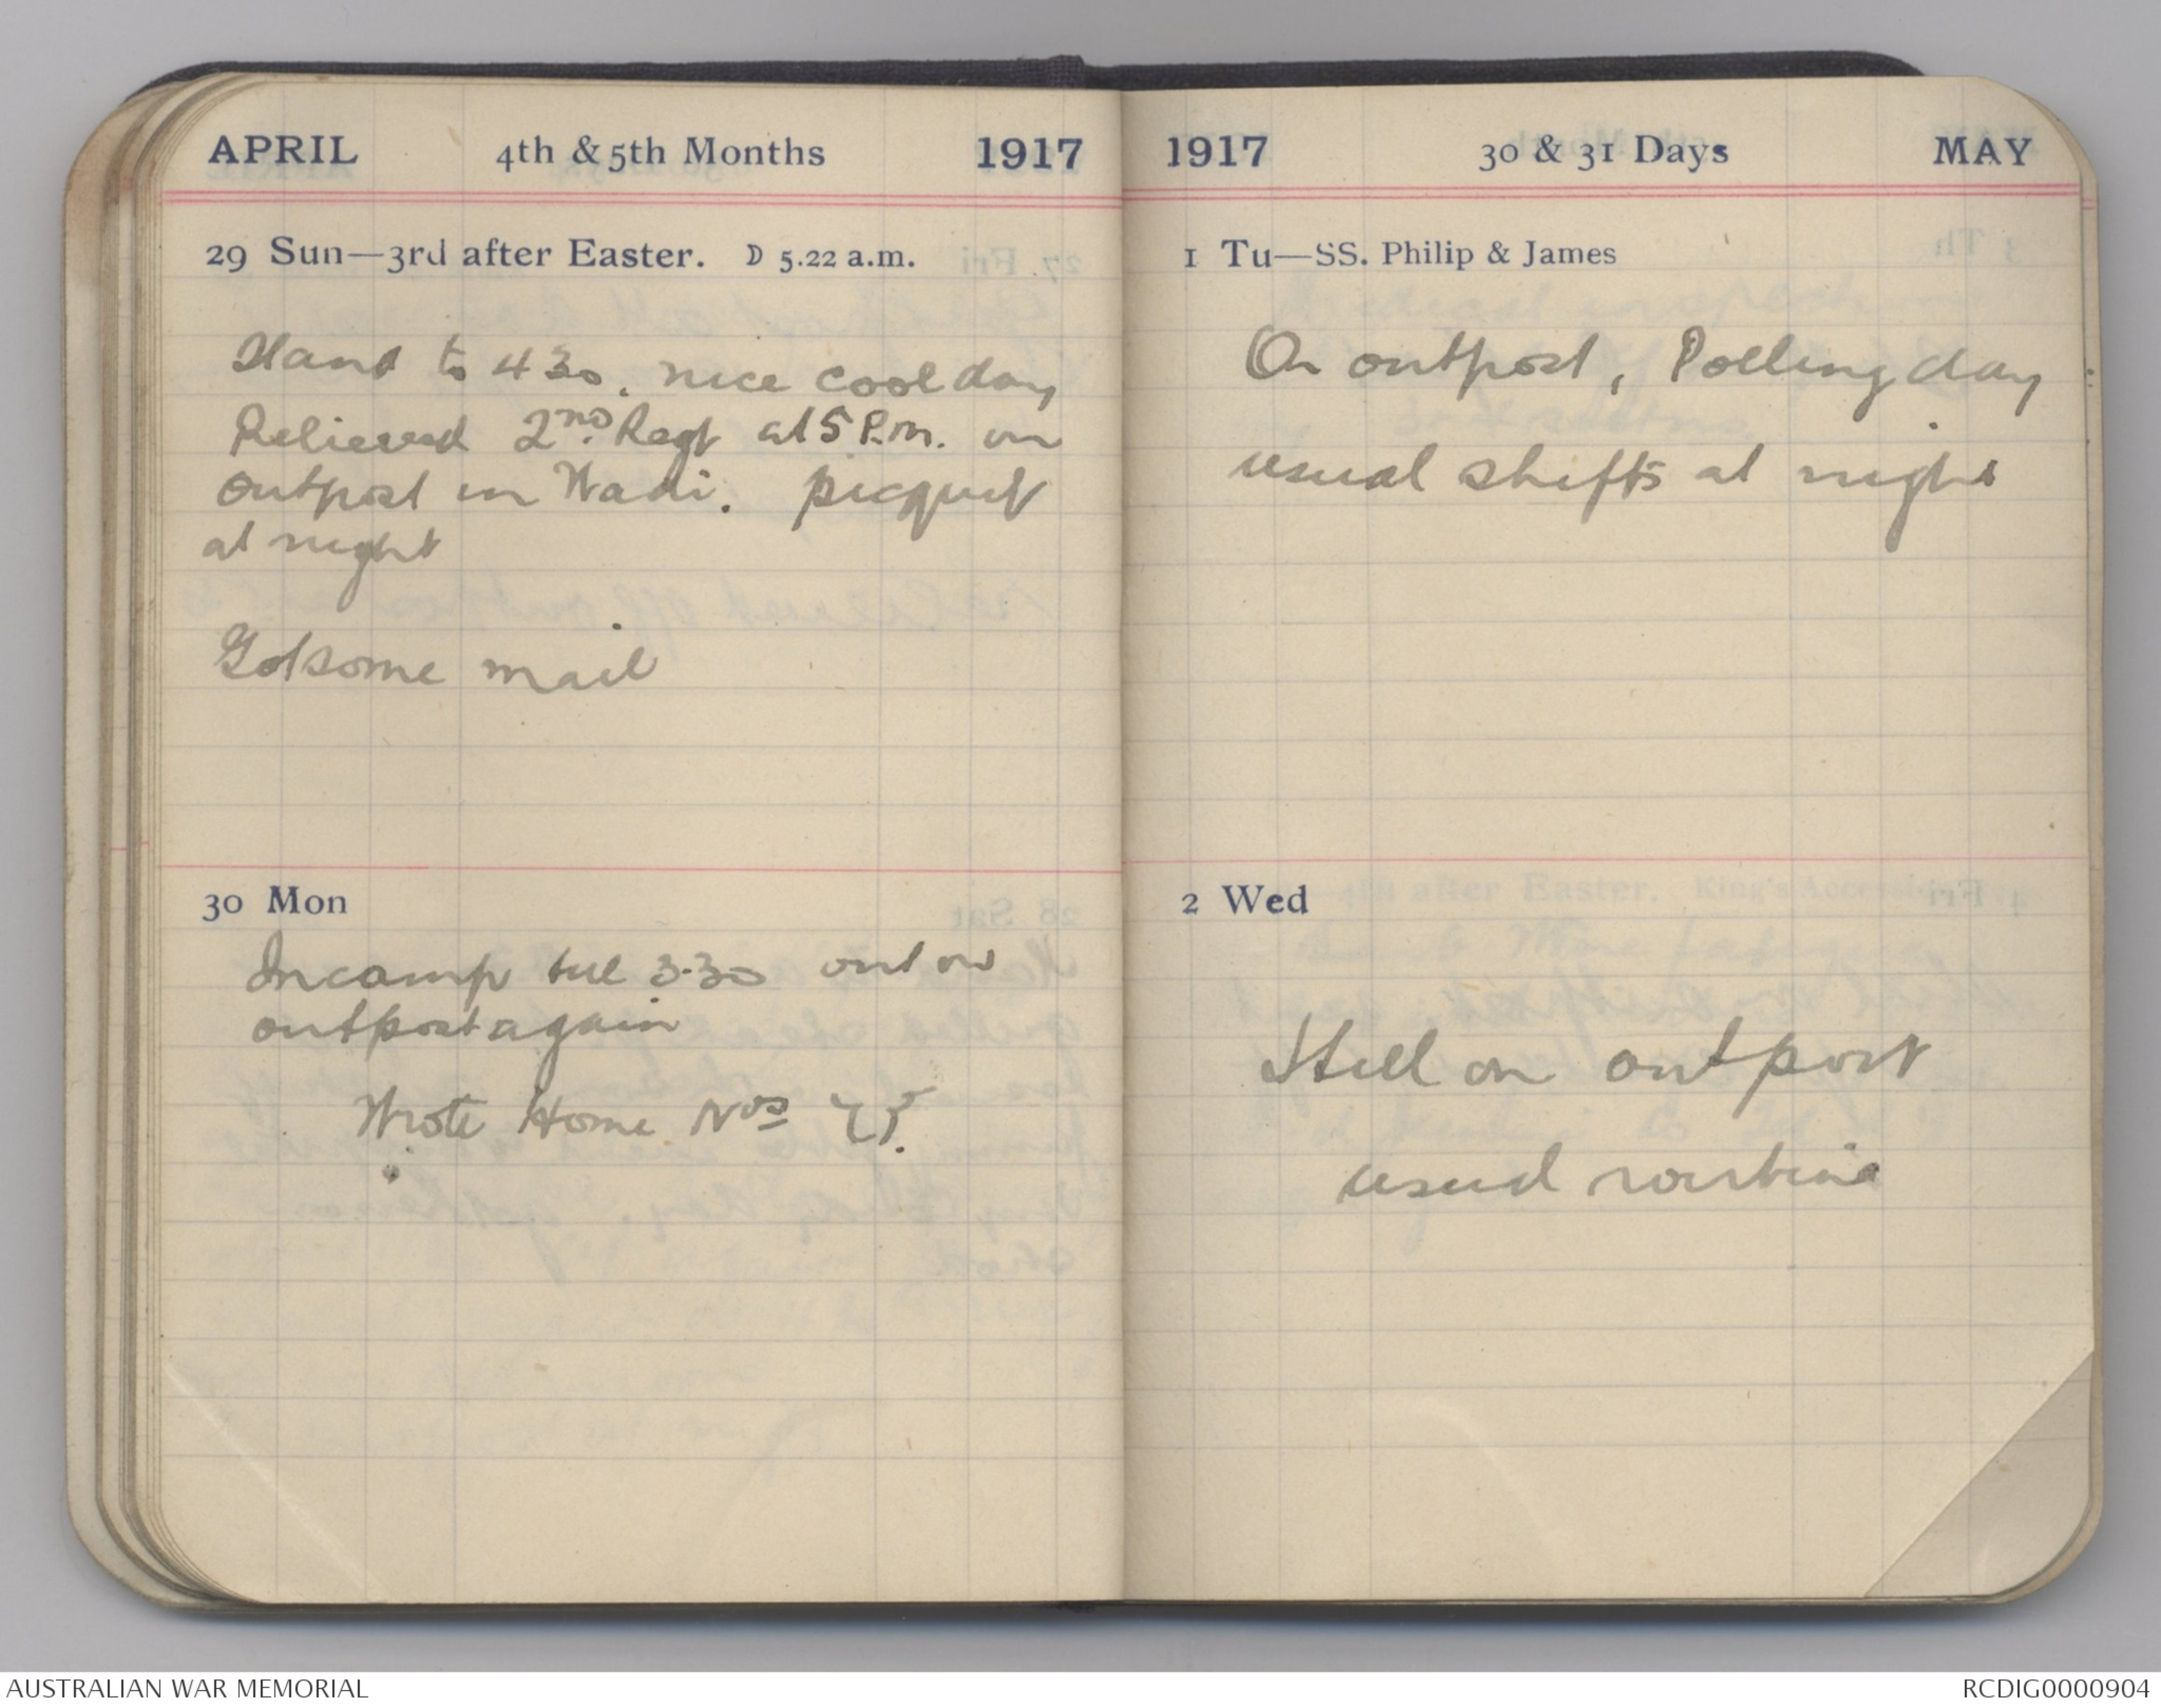 APRIL 4th & 5th Months 1917
29 Sun—3rd after Easter. D 5.22 a.m.
Stand to 4 30. nice cool day
Relieved 2nd. Regt at 5 P.m. on
outpost in Wadi. picquet
at night
Got some mail
30 Mon
In camp till 3.30 out on
outpost again
Wrote Home Nos
1917 30 & 31 Days MAY
1 Tu—SS. Philip & James
On outpost, Polling day
usual shifts at night
2 Wed
Still on outpost
usual routine
AUSTRALIAN WAR MEMORIAL
RCDIG0000904